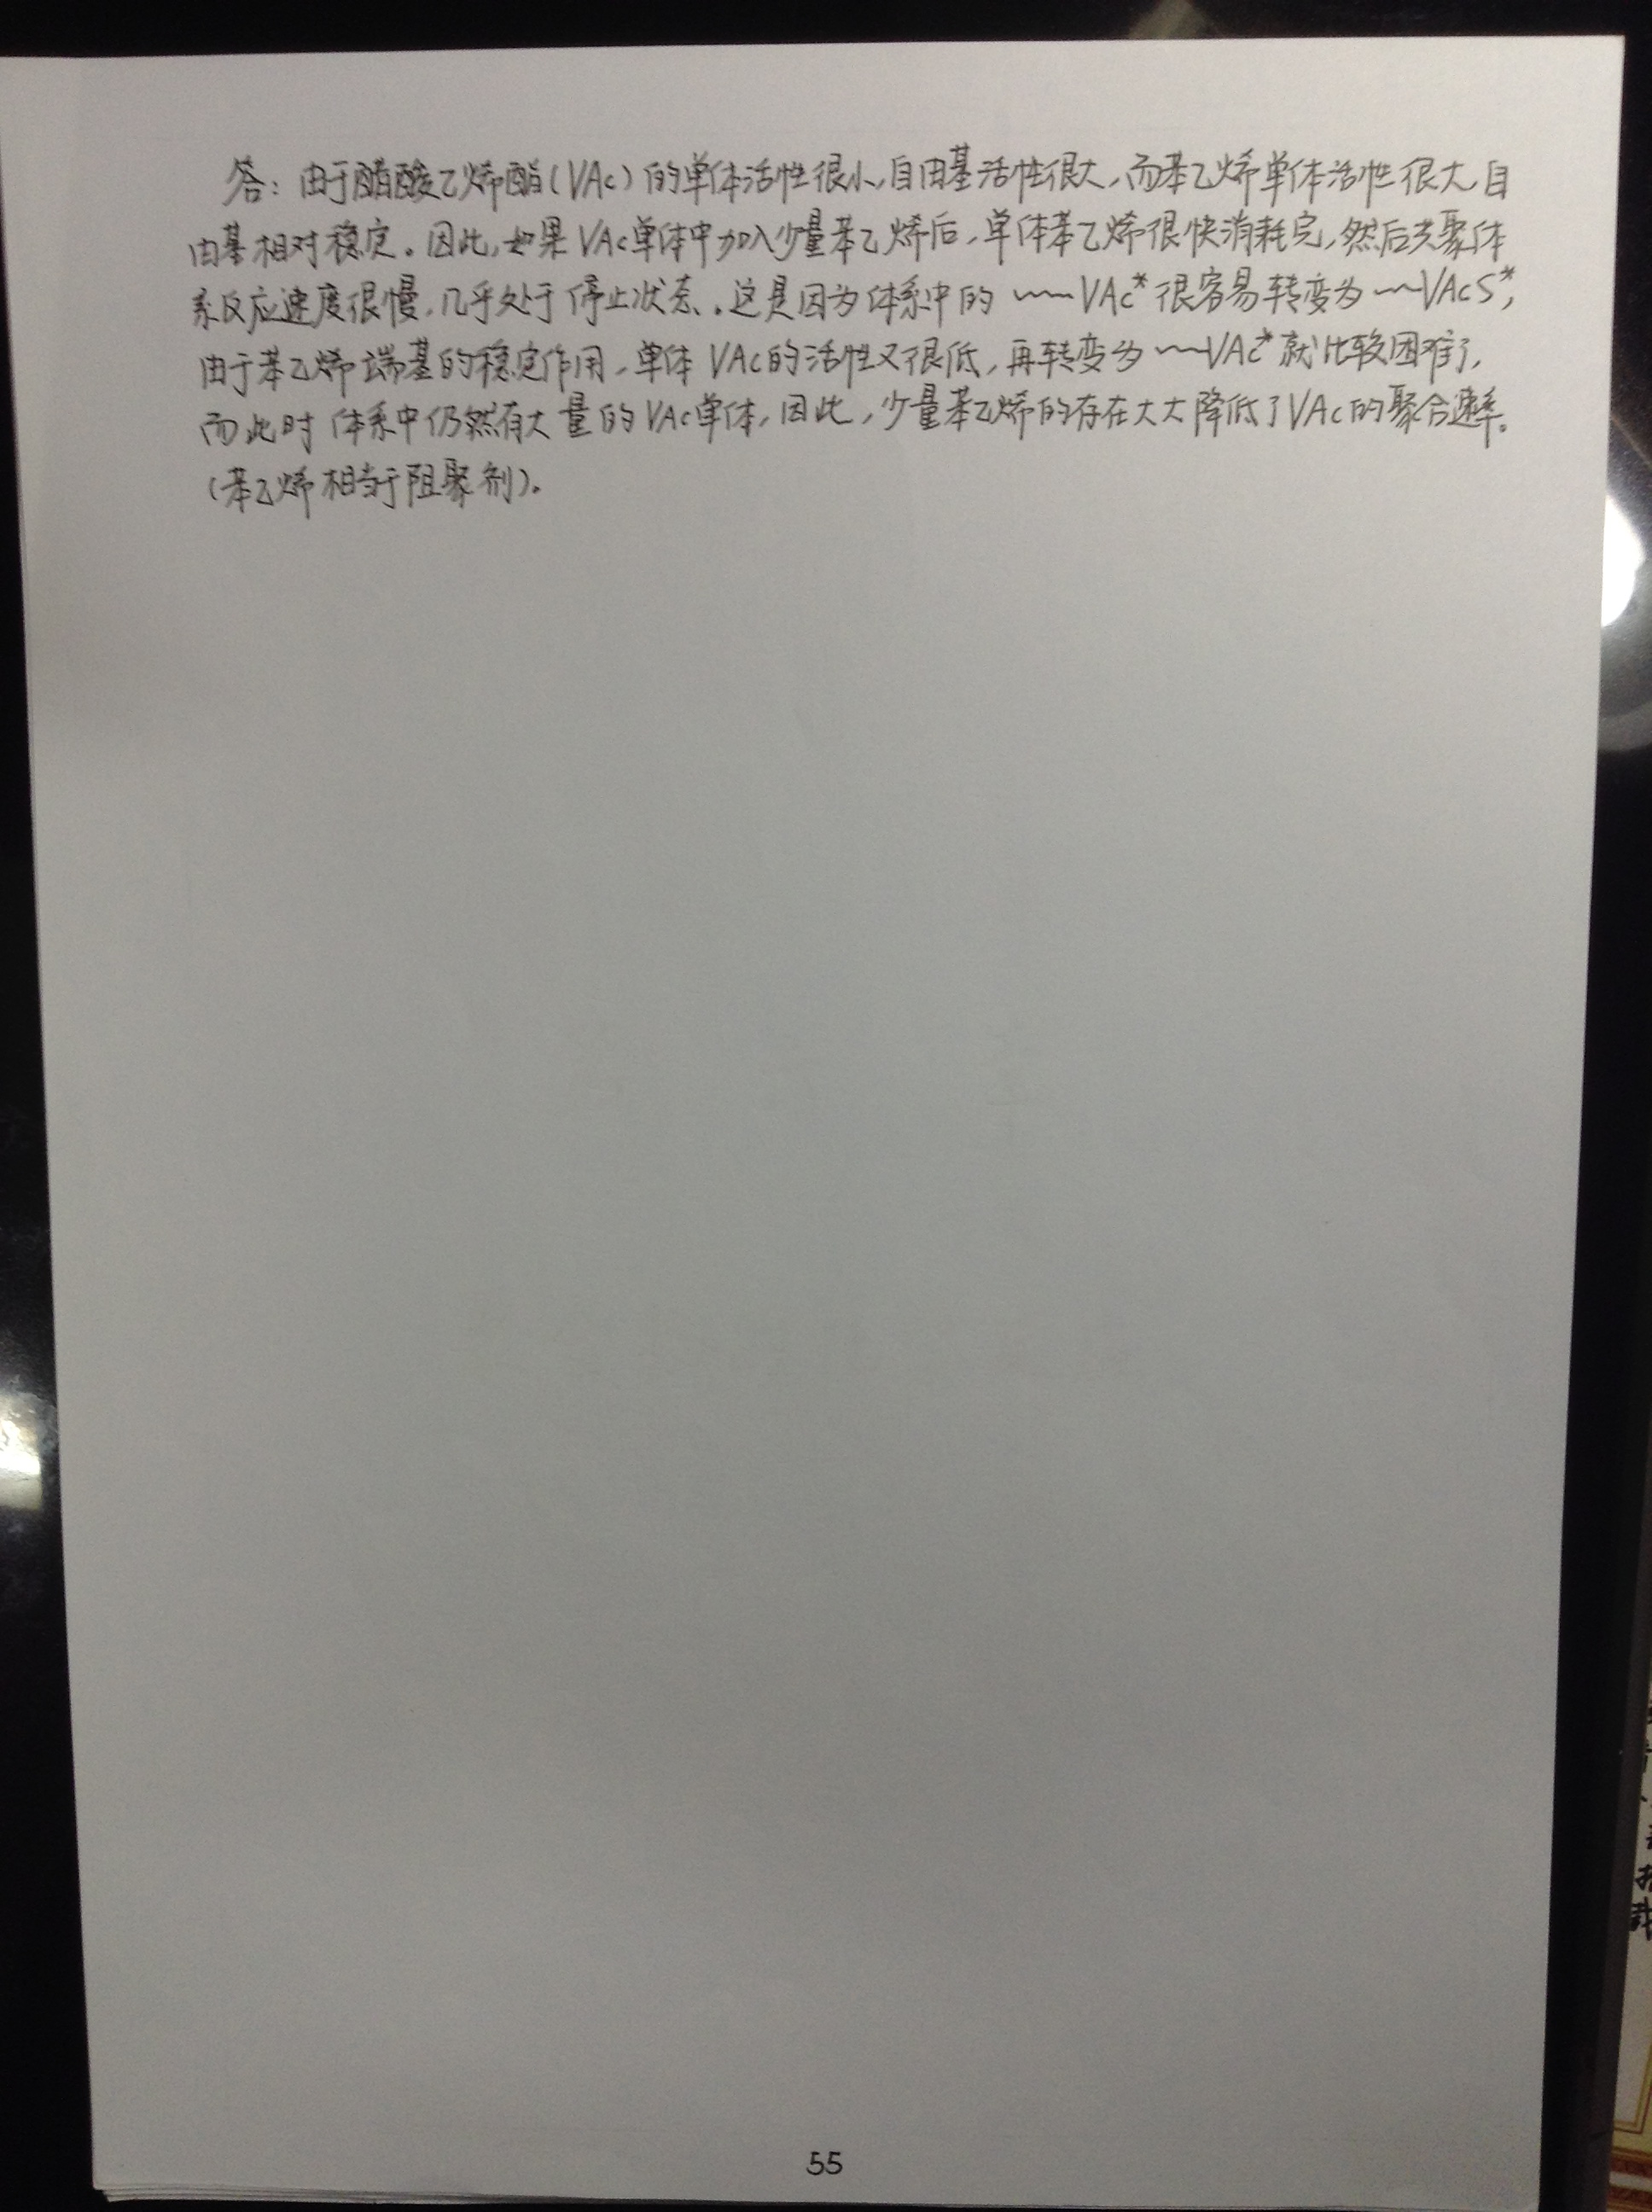 答：由于醋酸乙烯酯(VAc)的单体活性很小,自由基活性很大,而苯乙烯单体活性很大,自
由基相对稳定。因此,如果VAc单体中加入少量苯乙烯后,单体苯乙烯很快消耗完,然后共聚体
系反应速度很慢,几乎处于停止状态。这是因为体系中的 ~~~VAc* 很容易转变为 ~~VAcS*,
由于苯乙烯端基的稳定作用,单体VAc的活性又很低,再转变为 ~~VAc* 就比较困难了,
而此时体系中仍然有大量的VAc单体,因此,少量苯乙烯的存在大大降低了VAc的聚合速率。
(苯乙烯相当于阻聚剂)。
55